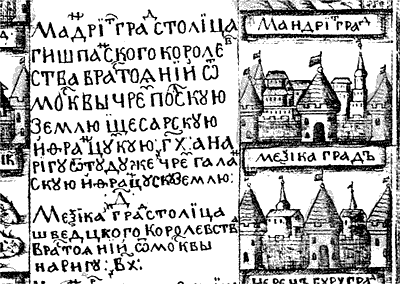 МАДРІТЪ ГРАД СТОЛІЦА
ГИШПАСКОГО КОРОЛЕВ
СТВА ВРАТОЯНІЙ Ѿ
МОСКВЫ ЧРЕ ПОСКУЮ
ЗЕМЛЮ ІЦЕСАРСКУЮ
ИФРАЦУКУЮ ГХ АНА
РІГУ ѾТУДУЖЕ ЧРЕ ГАЛА
СКУЮ ИФРАЦУСКУ ЗЕМЛЮ
МЕЗІКА ГРАД СТОЛІЦА
ШВЕДЦКОГО КОРОЛЕВСТВ
ВРАТОЯНІЙ Ѿ МОСКВЫ
НАРИГУ ВХ
МАНДРІТ ГРАД
МЕЗІКА ГРАДЪ